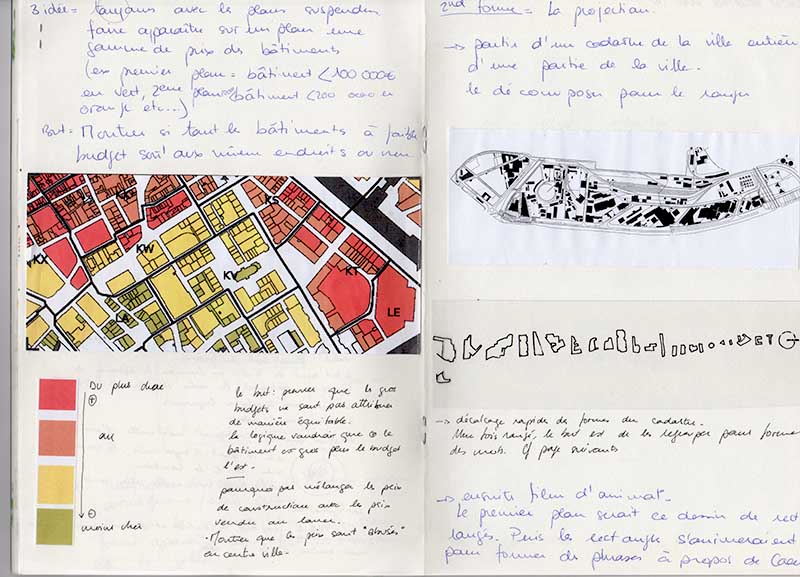 3 idée = toujours avec le plans suspendu
faire apparaître sur un plan une
gamme de prix des bâtiments
(ex premier plan = bâtiment < 100 000€
en vert, 2eme plan bâtiment < 200 000 en
orange etc...)
But = Montrer si tout le bâtiments à faible
budget sont aux même endroits ou non
KS
KX
KW
KV
KT
LA
LE
Du plus cher
+
au
-
moins cher
le but : prouver que les gros
budgets ne sont pas attribuer
de manière équitable.
la logique voudrait que le
bâtiment gros plus le budget
l'est.
pourquoi pas mélanger le prix
de construction avec le prix
vendu ou louer.
• Montrer que les prix sont "abusés"
en centre ville.
2nd forme = La projection.
→ partir d'un cadastre de la ville entière
d'une partie de la ville.
le décomposer pour le ranger
→ décalcage rapide de formes du cadastre.
Une fois rangé, le but est de les regrouper pour former
des mots. Cf page suivants
→ ensuite film d'animat.
Le premier plan serait ce dessin de rect
langés. Puis les rectangle s'animeraient
pour former de phrases à propos de Caen